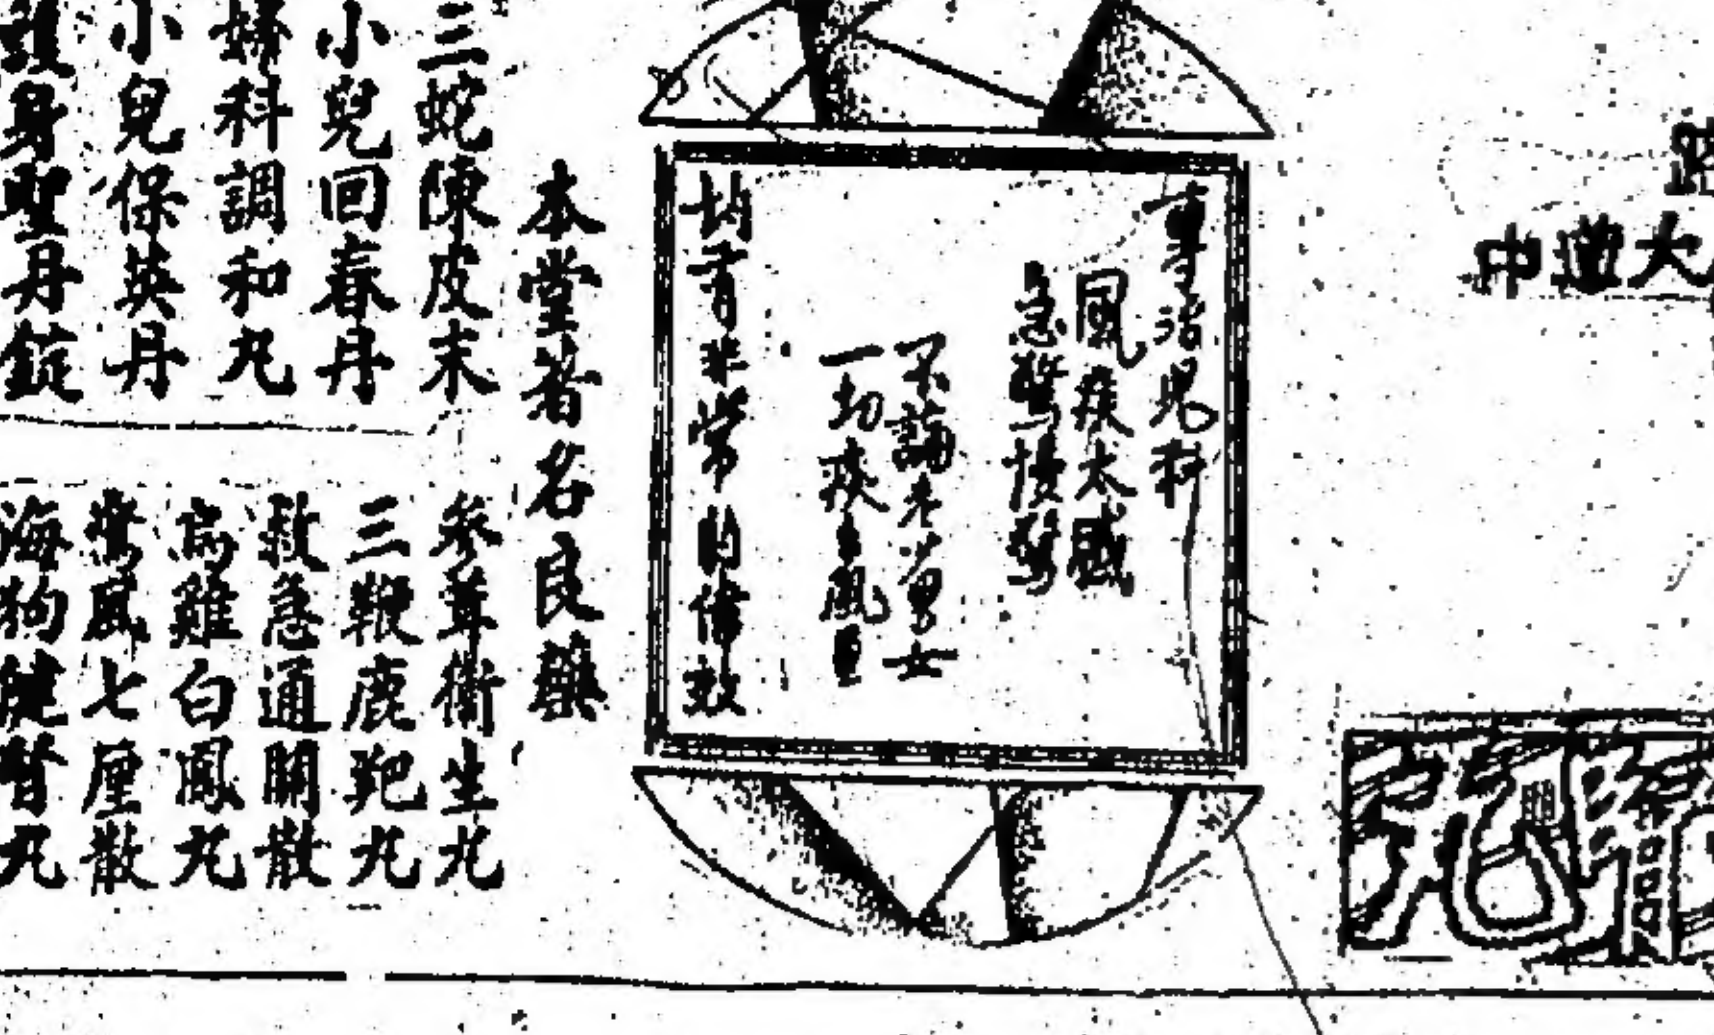 中道大
專治兒科
風痰太盛
急驚慢驚
不論老少男女
一切痰
均有非常的偉效
本堂著名良藥
三蛇陳皮末
小兒回春丹
婦科調和丸
小兒保英丹
護身聖丹錠
參茸衛生丸
三鞭鹿
救急通關散
烏雞白鳳丸
驚風七厘散
海狗健腎丸